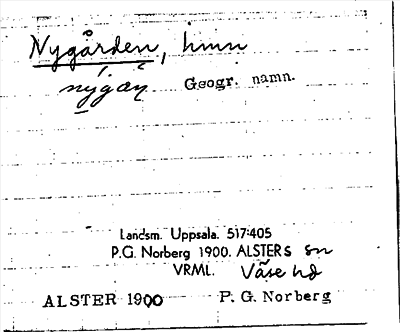 Nygården, hmn
nýgaṇ Geogr. namn.
Landsm. Uppsala. 517:405
P.G. Norberg 1900. ALSTERS sn
VRML. Väse hd
ALSTER 1900 P. G. Norberg